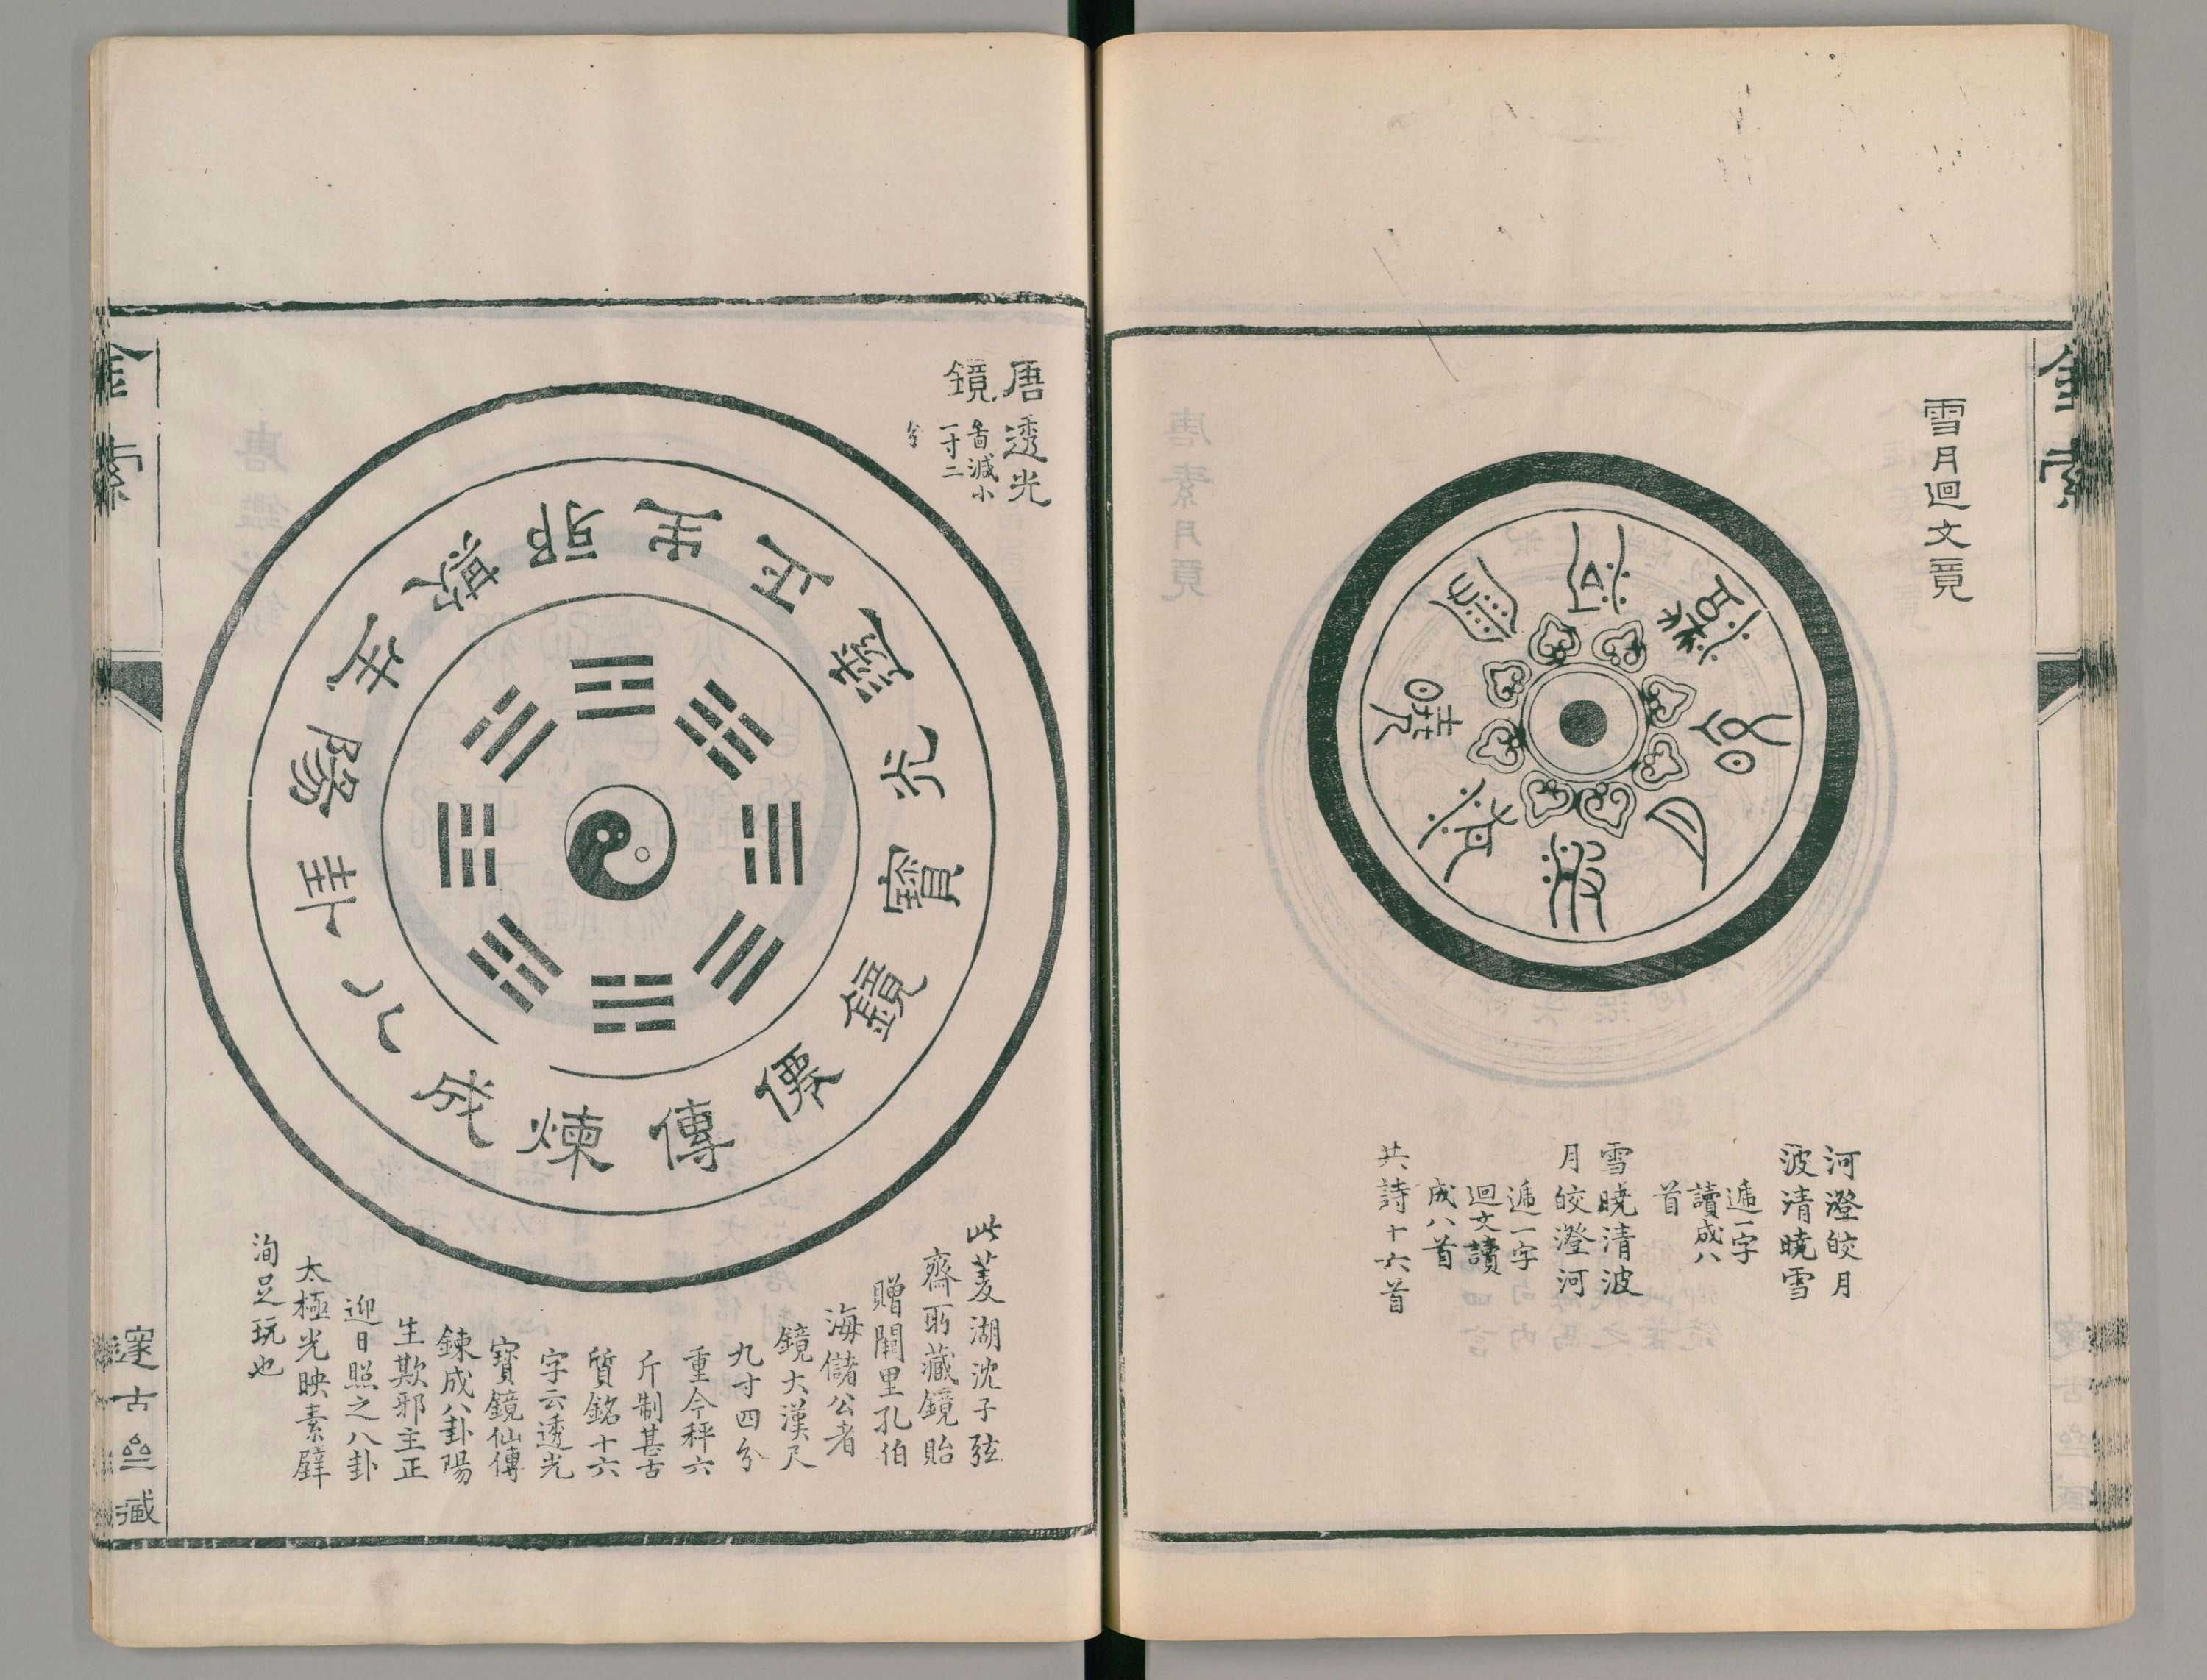 金索
雪月迴文竟
河澄皎月波清曉雪
河澄皎月
波清曉雪
遞一字
讀成八
首
雪曉清波
月皎澄河
遞一字
迴文讀
成八首
共詩十六首
唐透光
鏡
啚減小
一寸二
分
透光寶鏡僊傳煉成八卦陽生欺邪主正
此菱湖沈子弦
齋所藏鏡貽
贈闕里孔伯
海儲公者
鏡大漢尺
九寸四分
重今秤六
斤制甚古
質銘十六
字云透光
寶鏡仙傳
鍊成八卦陽
生欺邪主正
迎日照之八卦
太極光映素壁
洵足玩也
金索
邃古亝藏